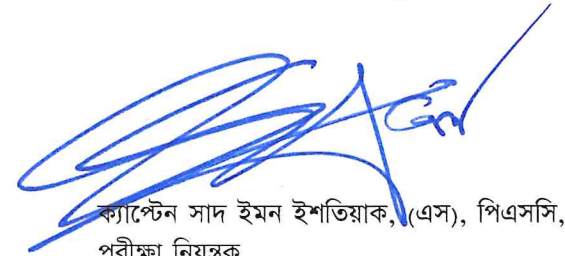 ক্যাপ্টেন সাদ ইমন ইশতিয়াক, (এস), পিএসসি,
পরীক্ষা নিয়ন্ত্রক